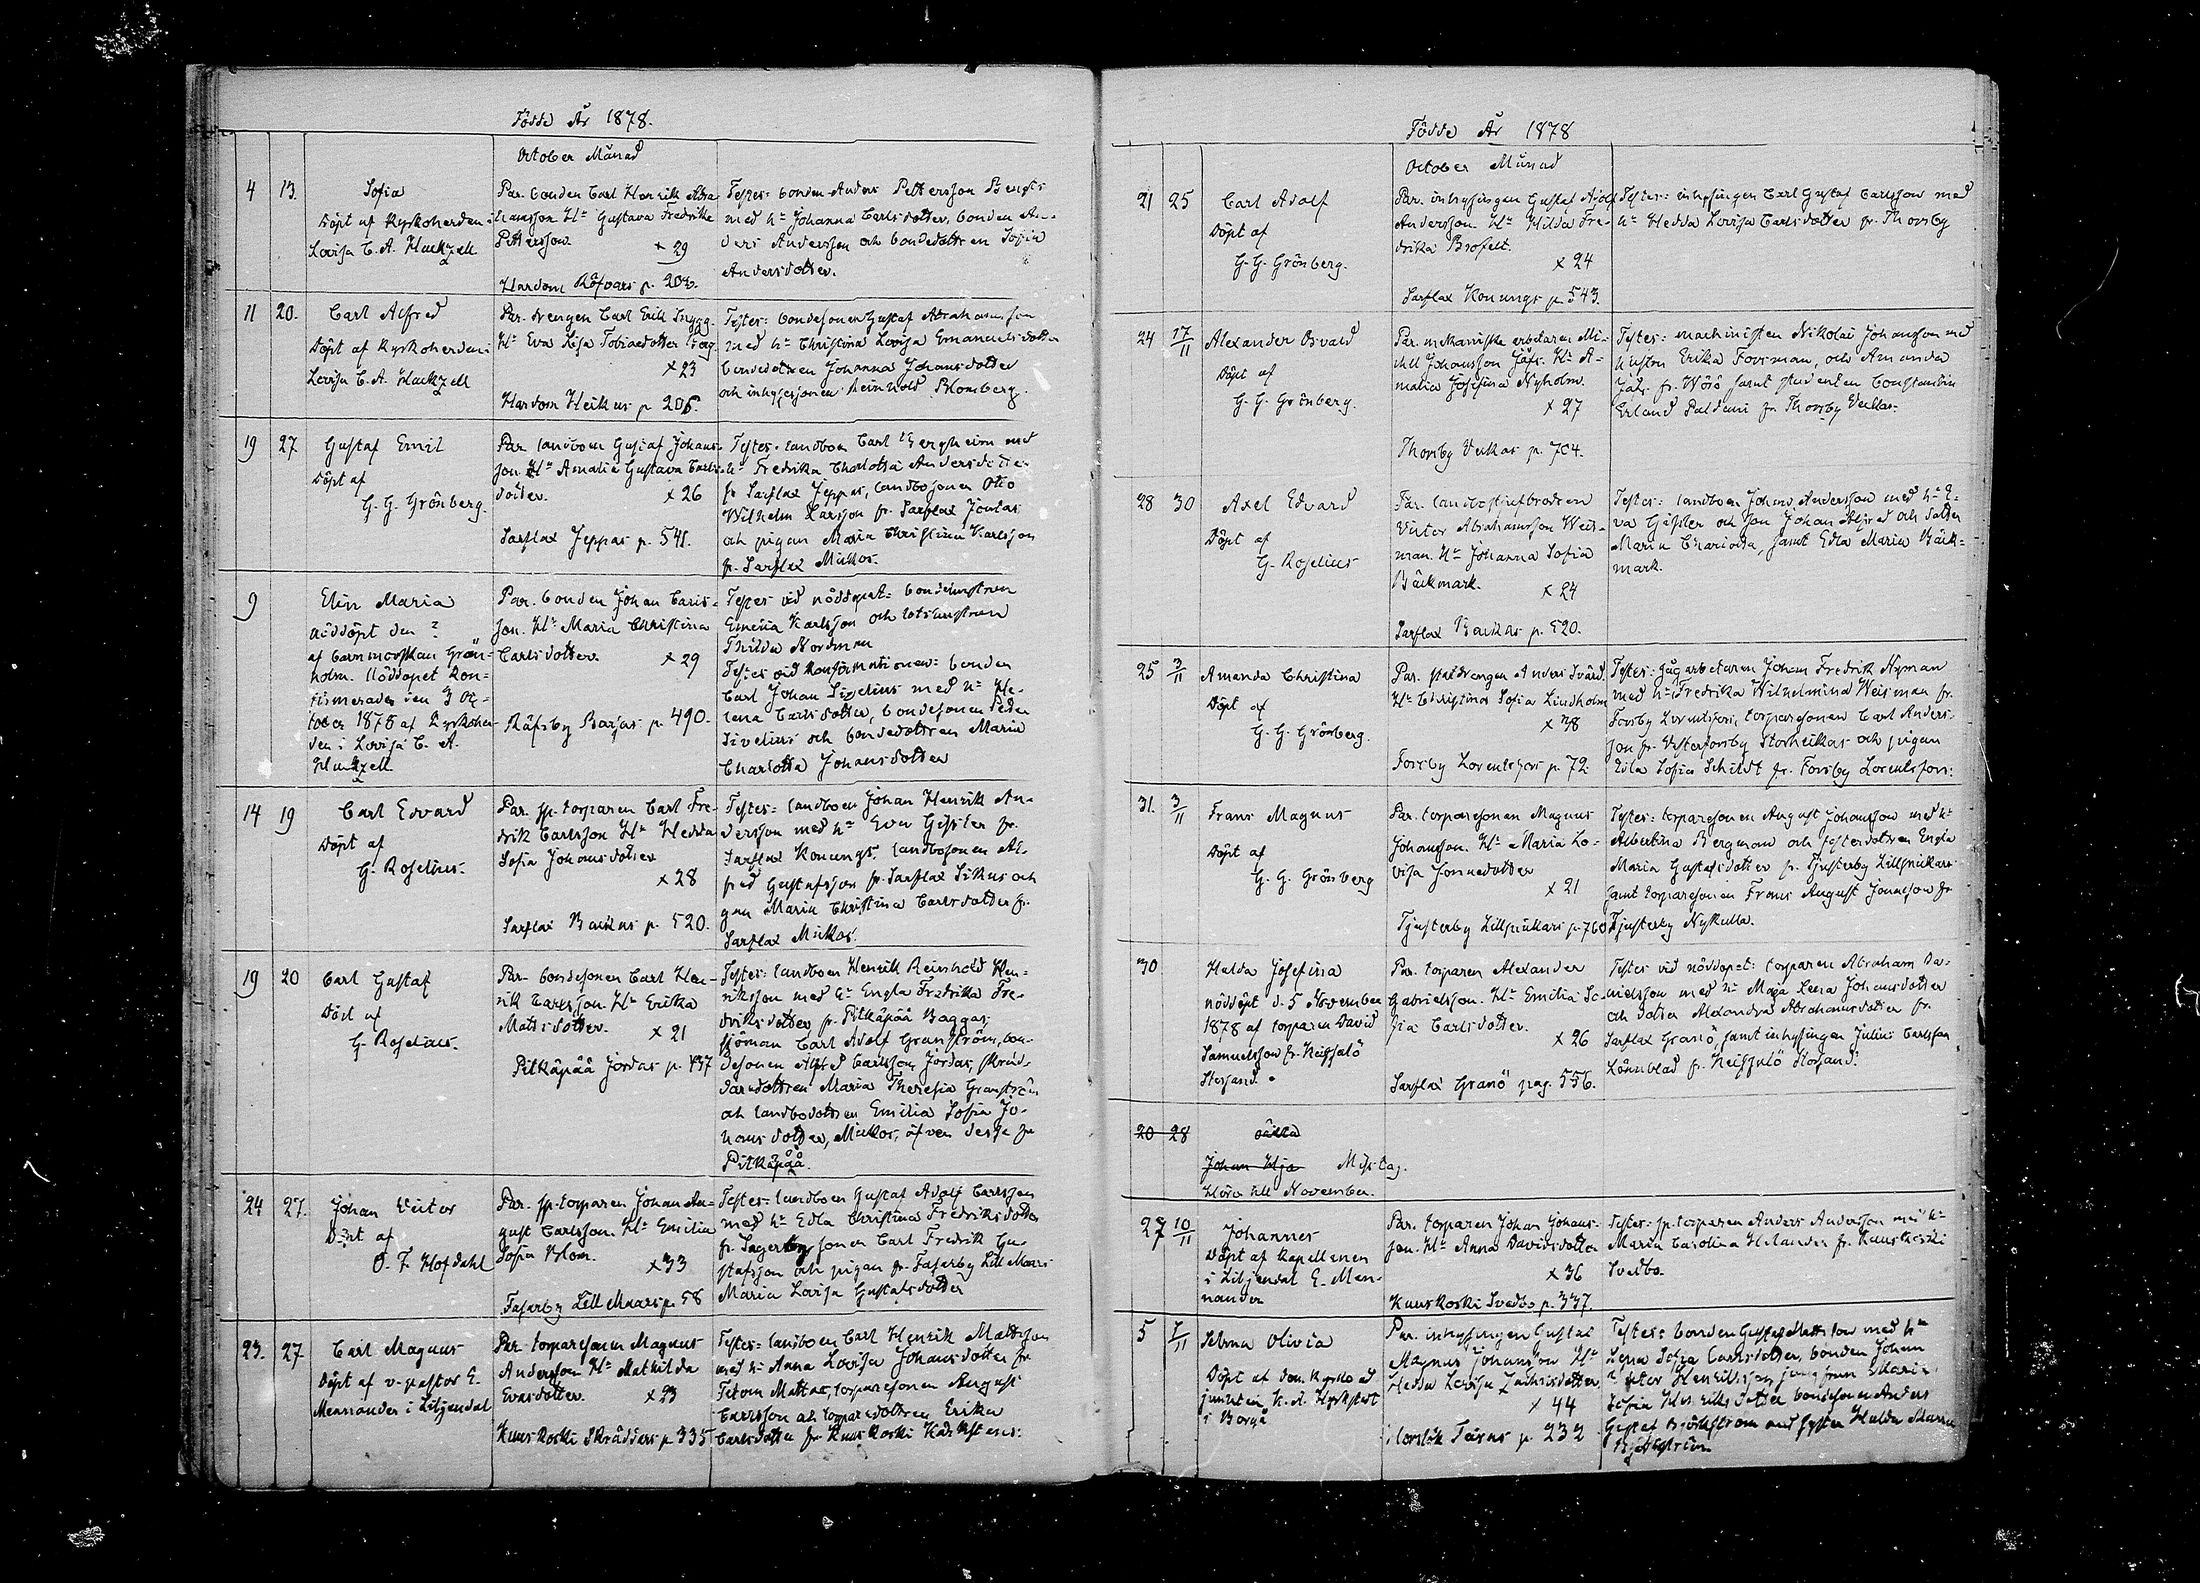 Födde År 1878.
October Månad
4 13. Sofia
Döpt af Kyrkoherden i
Lovisa C. A. Hackzell
Par. bonden Carl Henrik Abra
hamsson Hu Gustava Fredrika
Pettersson
x 29
Hardom Röfvars p.
Testes: bonden Anders Pettersson Bengts
med hu Johanna Carlsdotter, bonden An-
ders Andersson och bondedottren Sofia
Andersdotter.
11 20. Carl Alfred
Döpt af Kyrkoherden i
Lovisa C. A. Hackzell
Par. drengen Carl Erik
Hu Eva Lisa Tobiaedotter
x 23
Hardom Heikus p 205.
Testes: bondesonen Gustaf Abrahamsson
med hu Christina Lovisa Emanuelsdotter
bondedottren Johanna Johansdotter
och inhysesonen Reinhold Blomberg.
19 27 Gustaf Emil
Döpt af
G. G. Grönberg.
Par. landbon Gustaf Johans-
son Hu Amalia Gustava Carls-
dotter.
x 26
Sarflax Jeppas p. 541.
Testes: landbon Carl Bergheim med
hu Fredrika Charlotta Andersdotter
fr Sarflax Jeppas, landbosonen Otto
Wilhelm Larsson fr. Sarflax Jontas
och pigan Maria Christina Karlsson
fr. Sarflax Mickos.
9 Elin Maria
nöddöpt den ?
af barnmorskan Grön-
holm. Nöddopet kon-
firmerades den 3 Oc-
tober 1878 af Kyrkoher-
den i Lovisa C. A.
Hackzell
Par. bonden Johan Carls-
son. Hu Maria Christina
Carlsdotter.
x 29
Räfsby Bagas p. 490.
Testes vid nöddopet: bondehustrun
Emelia Karlsson och lotshustrun
Thilda Nordman
Testes vid konfirmationen: bonden
Carl Johan Sivelius med hu He-
lena Carlsdotter, bondesonen Peter
Sivelius och bondedottren Maria
Charlotta Johansdotter
14 19 Carl Edvard
Döpt af
G. Roselius.
Par. sp. torparen Carl Fre-
drik Carlsson Hu Hedda
Sofia Johansdotter
x 28
Sarflax Backas p. 520.
Testes: landbon Johan Henrik An-
dersson med hu Eva Gissler fr.
Sarflax Konungs, landbosonen Al-
fred Gustafsson fr. Sarflax Sikus och
gan Maria Christina Carlsdotter fr.
Sarflax Mickos.
19 20 Carl Gustaf
Döpt af
G. Roselius.
Par. bondesonen Carl Hen-
rik Carlsson. Hu Erika
Matsdotter.
x 21
Pitkäpää Jordas p. 437
Testes: landbon Henrik Reinhold Hen-
riksson med hu Engla Fredrika Fre-
driksdotter fr. Pitkäpää Baggas,
sjöman Carl Adolf Granström, bon-
desonen Alfred Carlsson Jordas, skräd-
daredottren Maria Theresia Granström
och landbodottren Emilia Sofia Jo-
hansdotter, Mickos, äfven desse fr
Pitkäpää.
24 27. Johan Victor
Döpt af
O. F. Hofdahl
Par. sp. torparen Johan Au-
gust Carlsson. Hu Emilia
Sofia Blom.
x 33
Fasarby Lill Maars p. 58
Testes: landbon Gustaf Adolf Carlsson
med hu Edla Christina Fredriksdotter
fr. sonen Carl Fredrik Gu-
stafsson och pigan fr. Fasarby Lill Maars
Maria Lovisa Gustafsdotter
23. 27 Carl Magnus
Döpt af v. pastor E.
Mennander i Liljendal
Par. torparesonen Magnus
Andersson Hu Mathilda
Evasdotter.
x 23
Kuuskoski Skrädders p 335
Testes: landbon Carl Henrik Mattsson
med hu Anna Lovisa Johansdotter fr
Tetom Mattas, torparesonen August
Carlsson och torparedottren Erika
Carlsdotter fr Kuuskoski
Födde År 1878
October Månad
21 25 Carl Adolf
Döpt af
G. G. Grönberg.
Par. inhysingen Gustaf Adolf
Andersson Hu Hilda Fre-
drika Brofelt.
x 24
Sarflax Konungs p. 543.
Testes: inhysingen Carl Gustaf Carlsson med
hu Hedda Lovisa Carlsdotter fr. Thorsby
24 17/11 Alexander Osvald
Döpt af
G. G. Grönberg.
Par. mekaniske arbetaren Mi-
chel Johansson Jäfs. Hu A-
malia Josefina Nyholm.
x 27
Thorsby Veckas p. 704.
Testes: machinisten Nikolai Johansson med
hustru Erika Forsman, och Amanda
Jäfs fr. Wörå samt studenten Constantin
Erland Paldani fr Thorsby Veckas.
28 30 Axel Edvard
Döpt af
G. Roselius
Par. landbostjufbrodren
Victor Abrahamsson Weis-
man. Hu Johanna Sofia
Bäckmark.
x 24
Sarflax Backas p. 520.
Testes: landbon Johan Andersson med hu E-
va Gissler och son Johan Alfred och dotter
Maria Charlotta, samt Edla Maria Bäck-
mark.
25 3/11 Amanda Christina
Döpt af
G. G. Grönberg.
Par. stalldrengen Anders Svärd.
Hu Christina Sofia Lindholm
x 38
Forsby Lorentsfors p. 72
Testes: sågarbetaren Johan Fredrik Nyman
med hu Fredrika Wilhelmina Weisman fr.
Forsby Lorentsfors, torparesonen Carl Anders-
son fr. Vesterforsby Storheikas och pigan
Edla Sofia Schildt fr. Forsby Lorentsfors.
31. 3/11 Frans Magnus
Döpt af
G. G. Grönberg
Par. torparesonen Magnus
Johansson. Hu Maria Lo-
visa Jonnedotter
x 21
Tjusterby Lillpickars p. 760
Testes: torparesonen August Johansson med hu
Albertina Bergman och systerdottren Engla
Maria Gustafsdotter fr. Tjusterby Lillpickars
samt torparesonen Frans August Jonasson fr
Tjusterby Nykulla.
30 Hulda Josefina
nöddöpt d. 5 November
1878 af torparen David
Samuelsson fr. Keitsalö
Storsand.
Par. torparen Alexander
Gabrielsson. Hu Emilia So-
fia Carlsdotter.
x 26
Sarflax Granö pag. 556.
Testes vid nöddopet: torparen Abraham Da-
nielsson med hu Maja Lena Johansdotter
och dotter Alexandra Abrahamsdotter fr.
Sarflax Granö, samt inhysingen Julius Carlsson
Lönnblad fr. Keitsalö Storsand.
20 28
Johan Misstag.
Höra till November.
27 10/11 Johannes
Döpt af Kapellanen
i Liljendal E. Men-
nander
Par. torparen Johan Johans-
son. Hu Anna Davidsdotter
x 36
Kuuskoski Svedbo p. 337
Testes: sp. torparen Anders Andersson med hu
Maria Carolina Helander fr. Kuuskoski
Svedbo.
5 Selma Olivia
Döpt af domkyrko ad
junkten K. A. Hyrkstedt
i Borgå
Par. inhysingen Gustaf
Magnus Johansson Hu
Hedda Lovisa Zachrisdotter
x 44
p. 232
Testes: bonden Gustaf Mattsson med hu
Lena Sofia Carlsdotter, bonden Johan
Henriksson, jungfrun Maria
Sofia Henriksdotter bondesonen Anders
Gustaf Björkström med syster Hulda Maria
Björkström